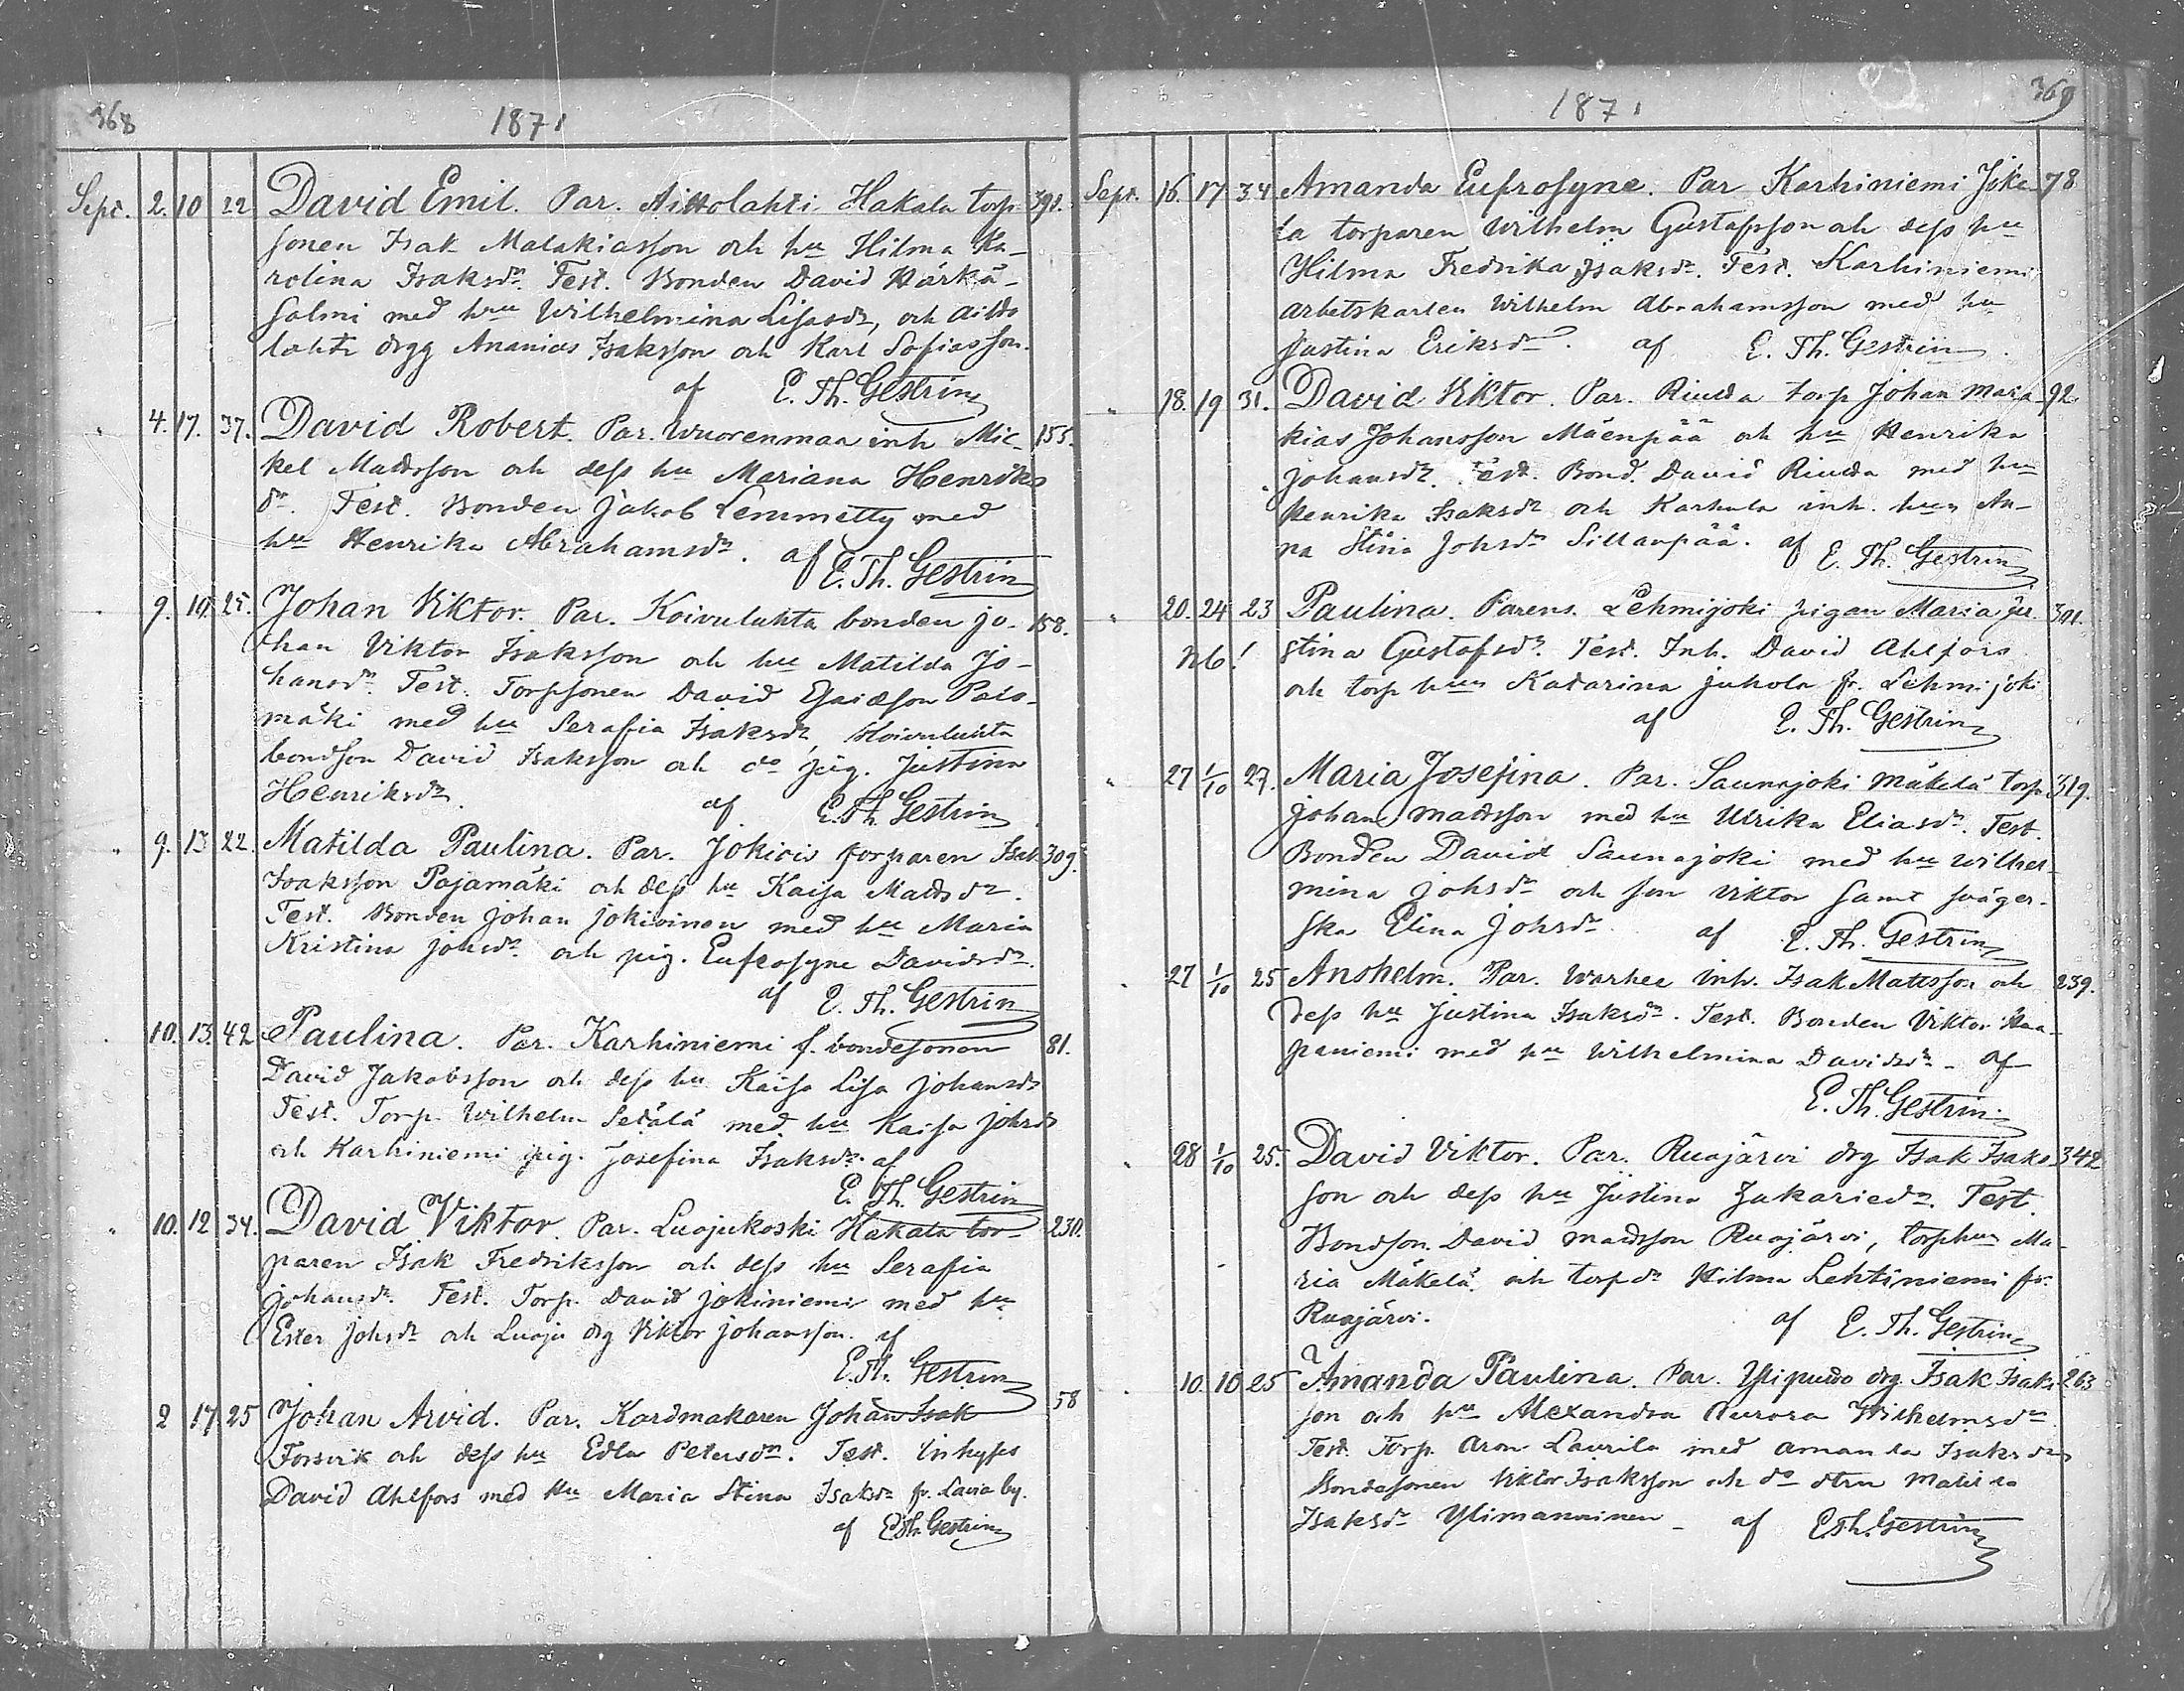 368
1871
Sept. 2. 10 22 David Emil. Par. Aittolahti Hakala torp- 391.
sonen Isak Malakiasson och hu Hilma Ka-
rolina Isaksdr. Test. Bonden David Härkä-
salmi med hu Wilhelmina Lisasdr, och Aitto
lahti drgg Ananias Isaksson och Karl Sofiasson.
af E. Th. Gestrin
" 4. 17. 37. David Robert. Par. Wuorenmaa inh Mic- 155.
kel Mattsson och dess hu Mariana Henriks
dr. Test. Bonden Jakob Lemmetty med
hu Henrika Abrahamsdr. af E. Th. Gestrin
" 9. 10. 25. Johan Viktor. Par. Koivuluhta bonden Jo- 158.
han Viktor Isaksson och hu Matilda Jo-
hansdr. Test. Torpsonen David Esaiasson Palo-
mäki med hu Serafia Isaksdr, Koivuluhta
bondson David Isaksson och do pig. Justina
Henriksdr. af E. Th. Gestrin
" 9. 13 22. Matilda Paulina. Par. Jokivis torparen Isak 309.
Isaksson Pajamäki och dess hu Kaisa Mattsdr.
Test. Bonden Johan Jokivinen med hu Maria
Kristina Johsdr. och pig. Eufrosyne Davidsdr.
af E. Th. Gestrin
" 10. 13. 42 Paulina. Par. Karhiniemi f. bondesonen 81.
David Jakobsson och dess hu Kaisa Lisa Johansdr
Test. Torp. Wilhelm Setälä med hu Kaisa Johsdr
och Karhiniemi pig. Josefina Isaksdr. af
E. Th. Gestrin
" 10. 12 34. David Viktor. Par. Luojukoski Hakala tor- 230.
paren Isak Fredriksson och dess hu Serafia
Johansdr. Test. Torp. David Jokiniemi med hu
Ester Johsdr och Luoju drg Viktor Johansson. af
E. Th. Gestrin
2 17 25 Johan Arvid. Par. Kardmakaren Johan Isak 58
Forsvik och dess hu Edla Petersdr. Test. Inhyses
David Ahlfors med hu Maria Stina Isaksdr fr. Lavia by.
af E Th. Gestrin
369
1871
Sept. 16. 17 34 Amanda Eufrosyne. Par Karhiniemi Joke- 78
la torparen Wilhelm Gustafsson och dess hu
Hilma Fredrika Isaksdr. Test. Karhiniemi
arbetskarlen Wilhelm Abrahamsson med hu
Justina Eriksdr. af E. Th. Gestrin.
" 18. 19 31. David Viktor. Par. Riutta torp Johan Mala- 92.
kias Johansson Mäenpää och hu Henrika
Johansdr. Test. Bond. David Riutta med hu
Henrika Isaksdr och Karhula inh. hun An-
na Stina Johsdr Sillanpää. af E. Th. Gestrin
" 20. 24 23 Paulina. Parens. Lehmijoki pigan Maria Ju- 301.
Nb! stina Gustafsdr. Test. Inh. David Ahlfors
och torp hun Katarina Juhola fr. Lehmijoki
af E. Th. Gestrin
" 27 1/10 27. Maria Josefina. Par. Saunajoki Mäkelä torp. 319.
Johan Mattsson med hu Ulrika Eliasdr. Test.
Bonden David Saunajoki med hu Wilhel-
mina Johsdr och son Viktor samt sväger-
ska Elina Johsdr. af E. Th. Gestrin
" 27 1/10 25 Anshelm. Par. Warhee inh. Isak Mattsson och 239.
dess hu Justina Isaksdr. Test. Bonden Viktor Haa-
paniemi med hu Wilhelmina Davidsdr - af
E. Th. Gestrin.
" 28 1/10 25. David Viktor. Par. Ruojärvi drg Isak Isaks- 342
son och dess hu Justina Zakariedr. Test.
Bondson David Mattsson Ruojärvi, torphun Ma-
ria Mäkelä och torp dr Hilma Lehtiniemi fr.
Ruojärvi. af E. Th. Gestrin
" 10. 10 25 Amanda Paulina. Par. Yliputto drg. Isak Isaks- 263
son och hu Alexandra Aurora Wilhelmsdr
Test. Torp. Aron Laurila med Amanda Isaksdr
Bondesonen Viktor Isaksson och do dtrn Matilda
Isaksdr Ylimanninen - af E. Th. Gestrin